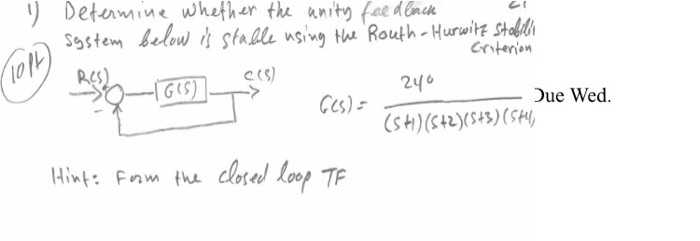 1) Determine whether the unity feedback
system below is stable using the Routh-Hurwitz Stabili
Criterion
10 Pt
R(s)
G(s)
C(s)
-
G(s) = 240 / (s+1)(s+2)(s+3)(s+4)
Due Wed.
Hint: Form the closed loop TF